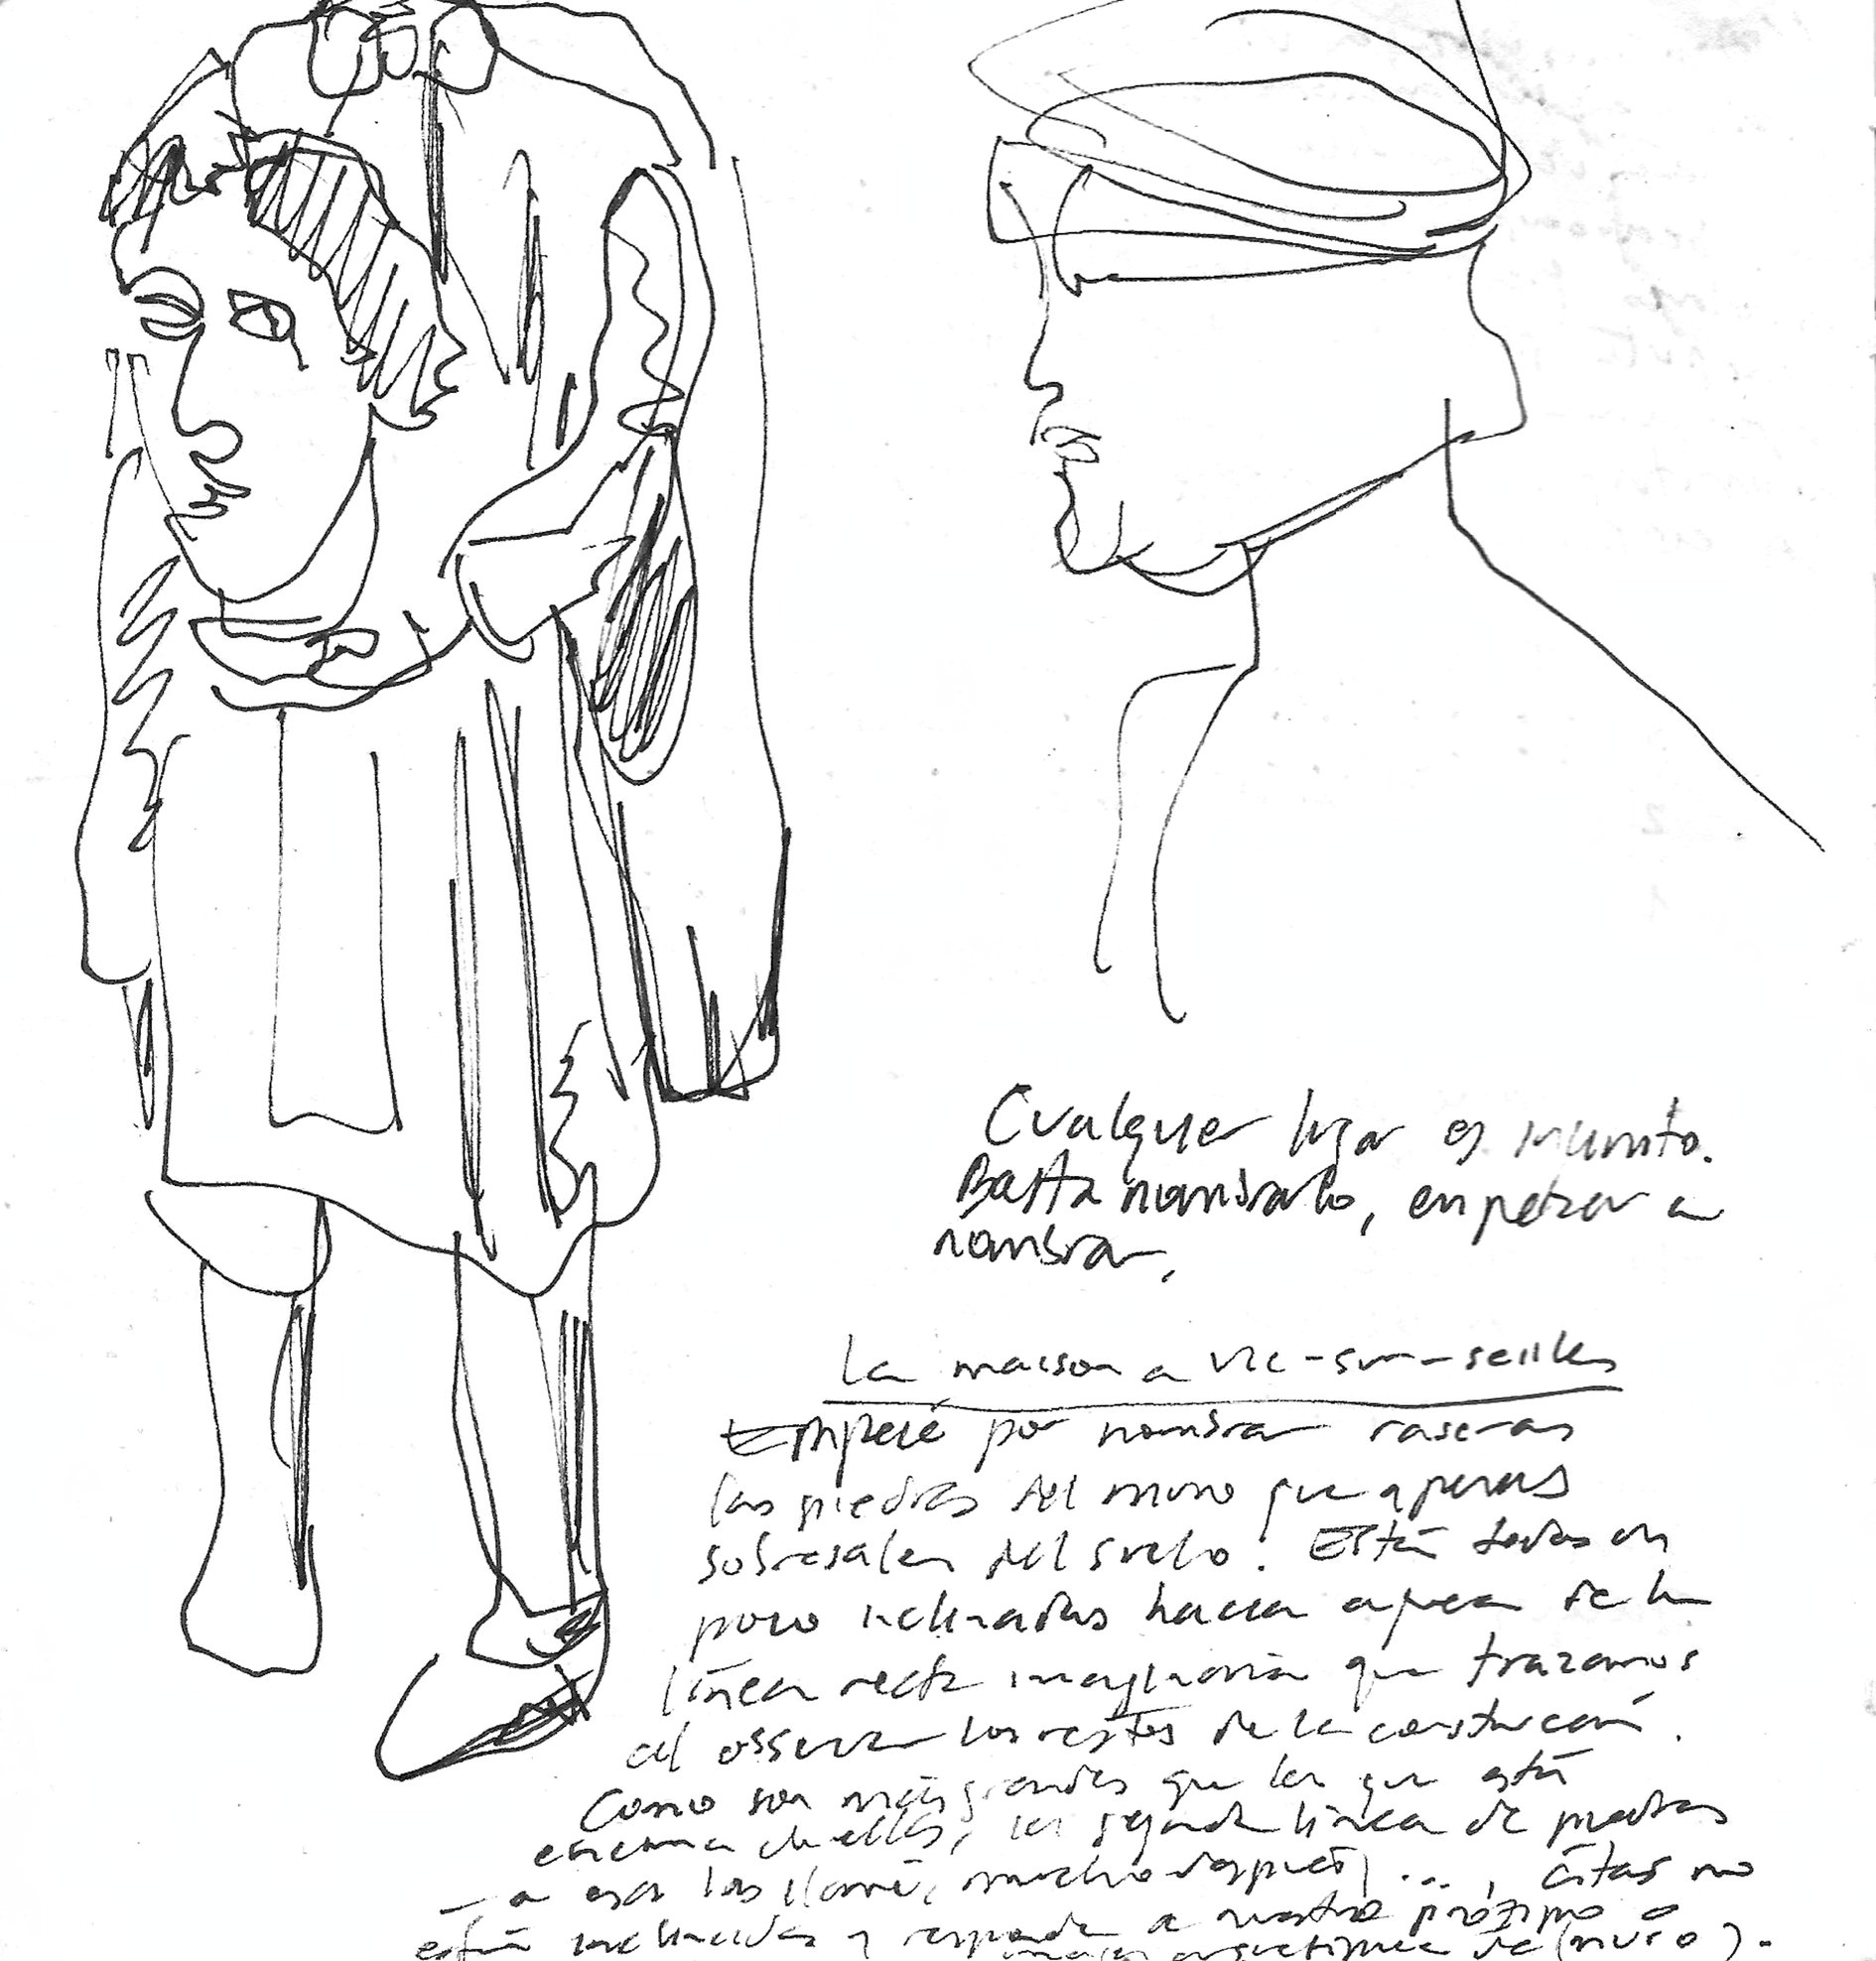 Cualquier lugar es infinito.
Basta nombrarlo, empezar a
nombrar.
La maison a Vic-sur-seilles
Empecé por nombrar
las piedras del muro que apenas
sobresalen del suelo. Están todas un
poco inclinadas hacia afuera de la
línea recta imaginaria que trazamos
al observar los restos de la construcción.
Como son más grandes que las que están
encima de ellas, la segunda línea de piedras
– a esas las llamé, mucho después, ..., éstas no
están inclinadas y responden a nuestro
arquetípica de (muro).